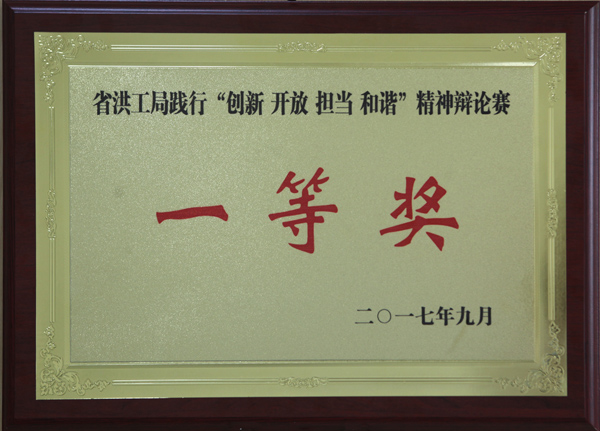 省洪工局践行“创新 开放 担当 和谐”精神辩论赛
一等奖
二〇一七年九月